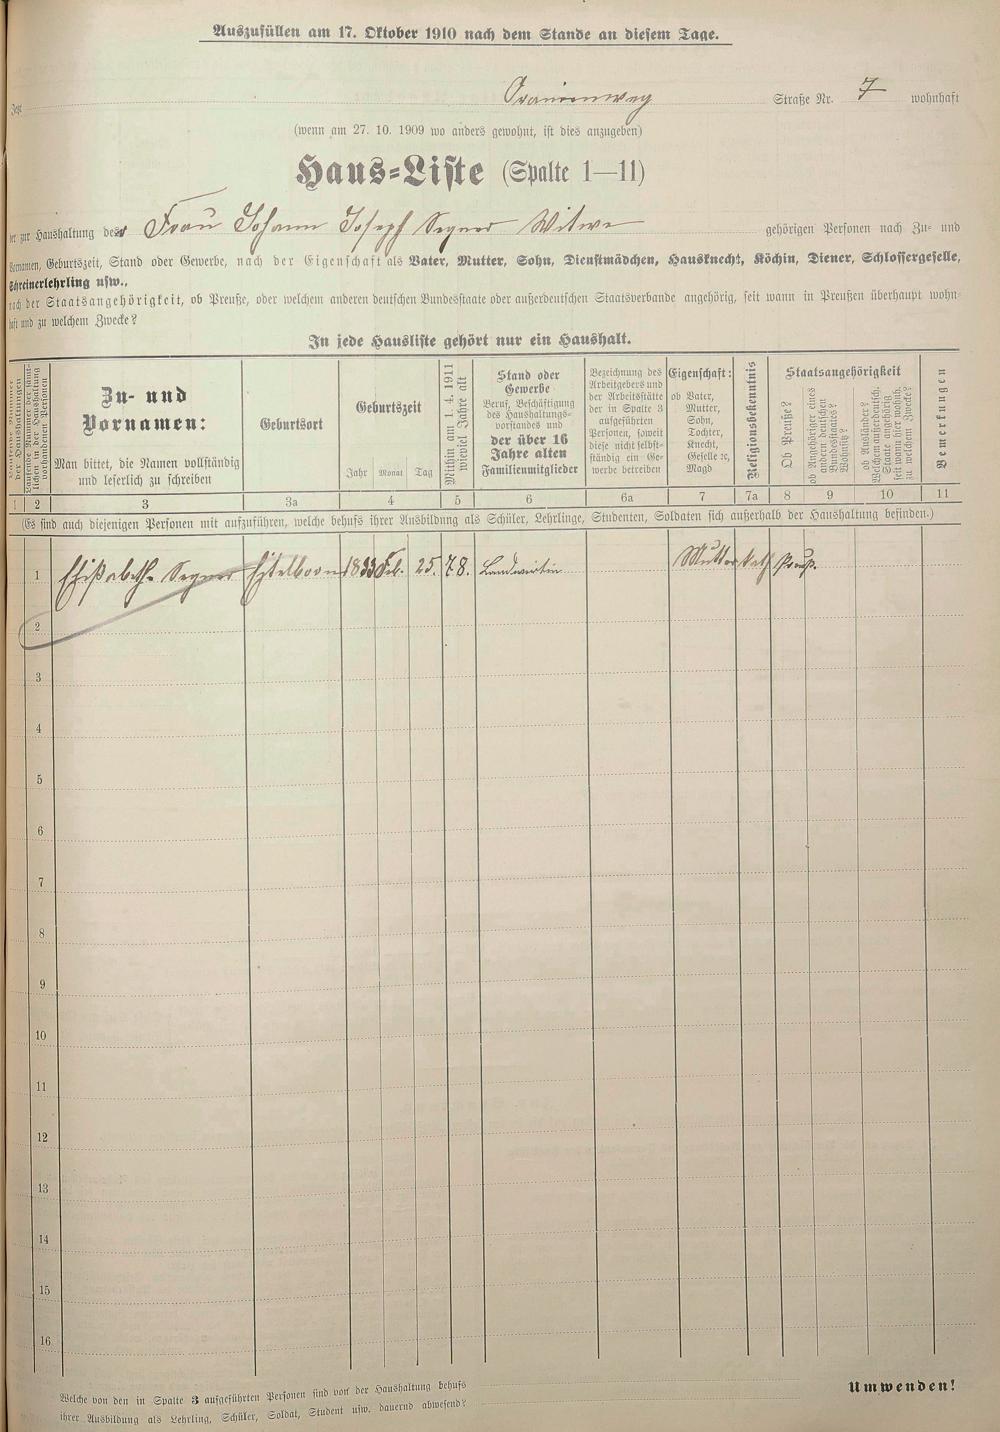 Auszufüllen am 17. Oktober 1910 nach dem Stande an diesem Tage.
Straße Nr. 7 wohnhaft
(wenn am 27. 10. 1909 wo anders gewohnt, ist dies anzugeben)
Haus-Liste (Spalte 1—11)
der zur Haushaltung der Frau Johann Joseph Segner Witwe gehörigen Personen nach Zu- und
Vornamen, Geburtszeit, Stand oder Gewerbe, nach der Eigenschaft als Vater, Mutter, Sohn, Dienstmädchen, Hausknecht, Köchin, Diener, Schlossergeselle,
Schreinerlehrling usw.,
nach der Staatsangehörigkeit, ob Preuße, oder welchem anderen deutschen Bundesstaate oder außerdeutschen Staatsverbande angehörig, seit wann in Preußen überhaupt wohn-
haft und zu welchem Zwecke?
In jede Hausliste gehört nur ein Haushalt.
Laufende Nummer
der Haushaltungen
Laufende Nummer der sämt-
lichen in der Haushaltung
vorhandenen Personen
Zu- und
Vornamen:
Man bittet, die Namen vollständig
und leserlich zu schreiben
Geburtsort
Geburtszeit
Jahr Monat Tag
Mithin am 1. 4. 1911
wieviel Jahre alt
Stand oder
Gewerbe
Beruf, Beschäftigung
des Haushaltungs-
vorstandes und
der über 16
Jahre alten
Familienmitglieder
Bezeichnung des
Arbeitgebers und
der Arbeitsstätte
der in Spalte 3
aufgeführten
Personen, soweit
diese nicht selbst-
ständig ein Ge-
werbe betreiben
Eigenschaft:
ob Vater,
Mutter,
Sohn,
Tochter,
Knecht,
Geselle ec,
Magd
Religionsbekenntnis
Staatsangehörigkeit
Ob Preuße?
ob Angehöriger eines
andern deutschen
Bundesstaates?
Wohnsitz?
ob Ausländer?
Welchem außerdeutsch.
Staate angehörig
seit wann hier wohnh.
zu welchem Zwecke?
Bemerkungen
1 2 3 3a 4 5 6 6a 7 7a 8 9 10 11
(Es sind auch diejenigen Personen mit aufzuführen, welche behufs ihrer Ausbildung als Schüler, Lehrlinge, Studenten, Soldaten sich außerhalb der Haushaltung befinden.)
1 Elisabetha Segner 1833 Feb. 25. 78. Landwirtin Mutter kath Preuß.
2
3
4
5
6
7
8
9
10
11
12
13
14
15
16
Welche von den in Spalte 3 aufgeführten Personen sind von der Haushaltung behufs
ihrer Ausbildung als Lehrling, Schüler, Soldat, Student usw. dauernd abwesend?
Umwenden!